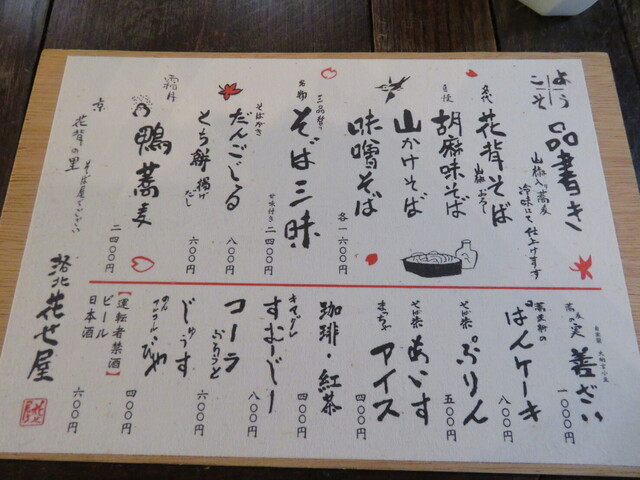 ようこそ
品書き
山椒入り蕎麦
冷味にて仕上げます
名代
花背そば
山椒おろし
自慢
胡麻味そば
山かけそば
味噌そば
各一六〇〇円
三品替り
名物
そば三昧
甘味付き
二四〇〇円
そばがき
だんごじる
八〇〇円
とち餅
揚げだし
六〇〇円
霜月
鴨蕎麦
二四〇〇円
京
花背の里
蕎麦の実
善ざい
一〇〇〇円
蕎麦粉の
ぱんケーキ
八〇〇円
そば茶
ぷりん
五〇〇円
そば茶
あいす
まっちゃ
アイス
四〇〇円
珈琲・紅茶
四〇〇円
すむーじー
八〇〇円
コーラ
じゅうす
六〇〇円
のんアルコール
びや
四〇〇円
【運転者禁酒】
ビール
日本酒
六〇〇円
洛北
花せ屋